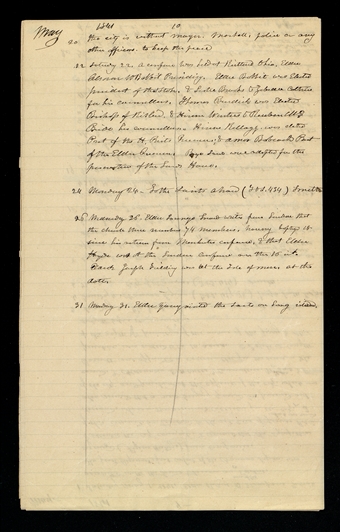 May 1841 10
20. the city is without mayor, Marshall, police or any
other officers to keep the peace
22 Saturday 22. A conference was held at Kirtland Ohio, Elder
Almon W Babbit Presiding. Elder Babbit was Elected
president of that Stake, & Lester Brooks & Zebedee Coltrin
for his councillors. Thomas Burdick was Elected
Bishop of Kirtland, & Hiram Winters & Reuben McBride
his councillors. Hiram Kellogg was elected
Prest of the H. Priests Quorum, & Amos Babcock Prest
of the Elders Quorum. were adopted for the
of the House.
24 Monday 24 - To the Saints abroad (T&S. 434)
26 Wednesday 26. Elder Lorenzo Snow writes from London that
the church there numbers 74 members,
since his return from Manchester conference, & that Elder
Hyde was at the London conference on the 16 inst.
Joseph Fielding was at the Isle of man at the
dates
31 Monday 31. Elder visited the Saints on Long island,